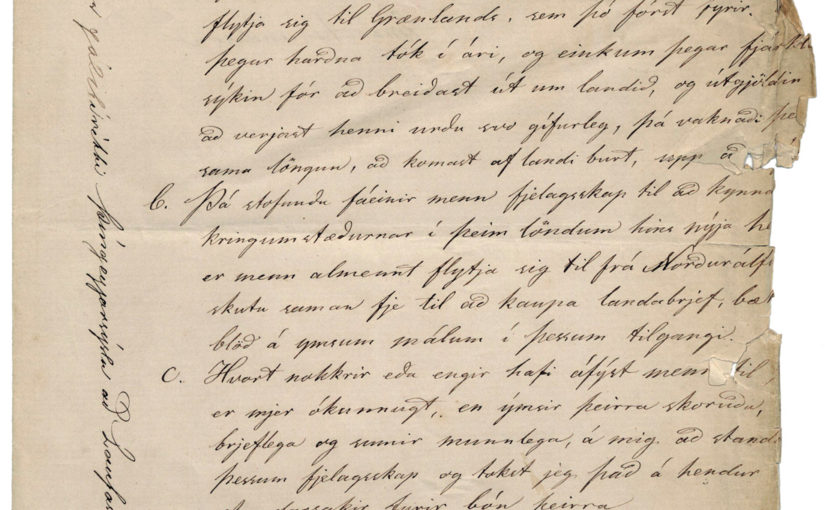 flytja sig til Grænlands, sem þó fórst fyrir.
þegar hardna tók í ári, og einkum þegar fjárklá
sýkin fór að breiðast út um landið, og útgjöldin
að verjast henni urðu svo gífurleg, þá vaknaði þe
sama löngun, að komast af landi burt, upp á
b. Þá stofnuðu fáeinir menn fjelagsskap til að kynna
kringumstæðurnar í þeim löndum hins nýja he
er menn almennt flytja sig til frá Norðurálfu
skutu saman fje til að kaupa landabrjef, bæk
blöð á ýmsum málum í þessum tilgangi.
c. Hvort nokkrir eða engir hafi áfýst menn til
er mjer ókunnugt, en ýmsir þeirra skoruðu,
brjeflega og sumir munnlega, á mig að standa
þessum fjelagsskap og tókst jeg það á hendur
fyrir bón þeirra
Þingeyjarsýslu að Laufás